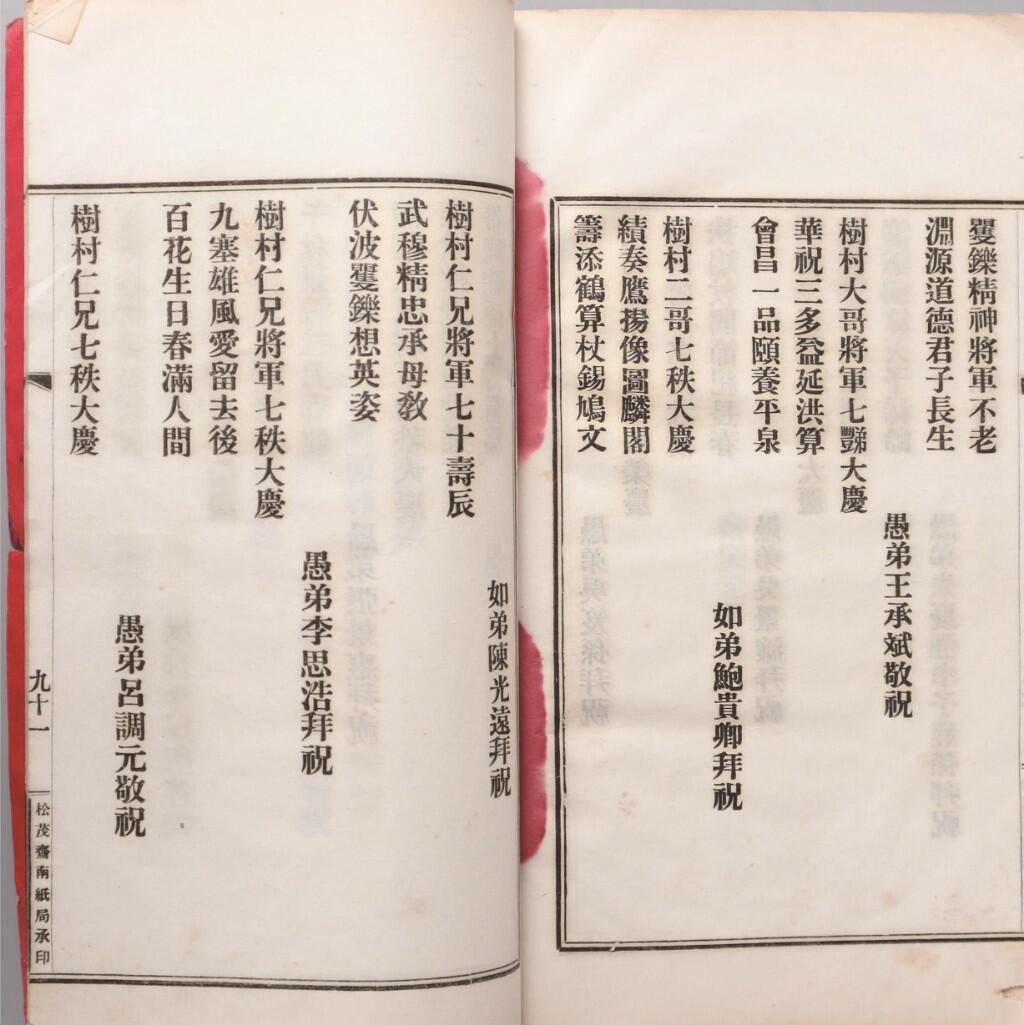 矍鑠精神將軍不老
淵源道德君子長生
愚弟王承斌敬祝
樹村大哥將軍七豑大慶
華祝三多益延洪算
會昌一品頤養平泉
如弟鮑貴卿拜祝
樹村二哥七秩大慶
績奏鷹揚像圖麟閣
籌添鶴算杖錫鳩文
如弟陳光遠拜祝
樹村仁兄將軍七十壽辰
武穆精忠承母教
伏波矍鑠想英姿
愚弟李思浩拜祝
樹村仁兄將軍七秩大慶
九塞雄風愛留去後
百花生日春滿人間
愚弟呂調元敬祝
樹村仁兄七秩大慶
九十一
松茂齋南紙局承印